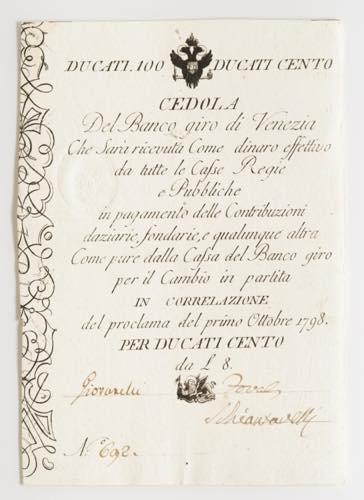 DUCATI.100 DUCATI CENTO
CEDOLA
Del Banco giro di Venezia
Che Sarà ricevuta Come dinaro effettivo
da tutte le Casse Regie
e Pubbliche
in pagamento delle Contribuzioni
daziarie, fondarie, e qualunque altra
Come pure dalla Cassa del Banco giro
per il Cambio in partita
IN CORRELAZIONE
del proclama del primo Ottobre 1798.
PER DUCATI CENTO
da £ 8.
Giovanelli
N.º 692.